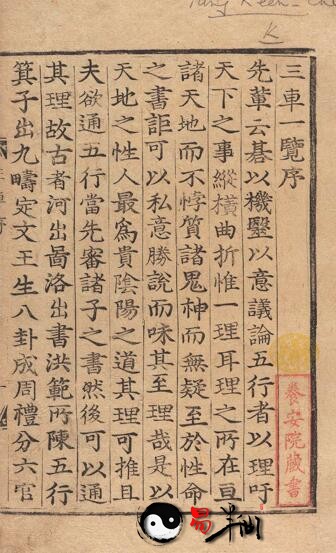 三車一覽序
先輩云碁以機毉以意議論五行者以理吁
天下之事縱橫曲折惟一理耳理之所在亘
諸天地而不悖質諸鬼神而無疑至於性命
之書詎可以私意勝說而味其至理哉是以
天地之性人最爲貴陰陽之道其理可推且
夫欲通五行當先審諸子之書然後可以通
其理故古者河出啚洛出書洪範所陳五行
箕子出九疇定文王生八卦成周禮分六官
養安院藏書
易